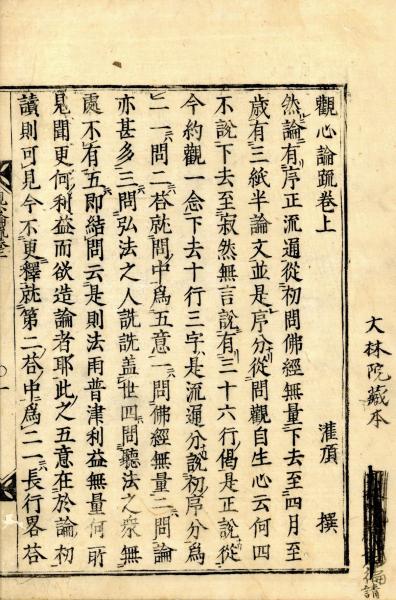 大林院藏本
觀心論疏卷上
灌頂 撰
然論有序正流通從初問佛經無量下去至四月至
歲有三紙半論文並是序分從問觀自生心云何四
不說下去至寂然無言說有三十六行偈是正說從
今約觀一念下去十行三字是流通分說初序分爲
二一問二荅就問中爲五意一問佛經無量二問論
亦甚多三問弘法之人詵詵盖世四問聽法之衆無
處不有五即結問云是則法雨普津利益無量何所
見聞更何利益而欲造論者耶此之五意在於論初
讀則可見今不更釋就第二荅中爲二一長行畧荅